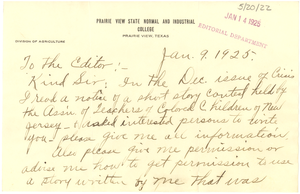 5/20/22
PRAIRIE VIEW STATE NORMAL AND INDUSTRIAL
COLLEGE
PRAIRIE VIEW, TEXAS
JAN 14 1925
EDITORIAL DEPARTMENT
DIVISION OF AGRICULTURE
Jan. 9, 1925.
To the Editor:-
Kind Sir: In the Dec. issue of Crisis
I read a notice of a short story contest held by
the Ass'n of Teachers of Colored Children of New
Jersey - asked interested persons to write
you - please give me all information.
Also please give me permission or
advise me how to get permission to use
a story written by me that was